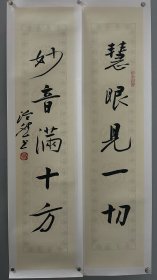 慧眼見一切
妙音滿十方